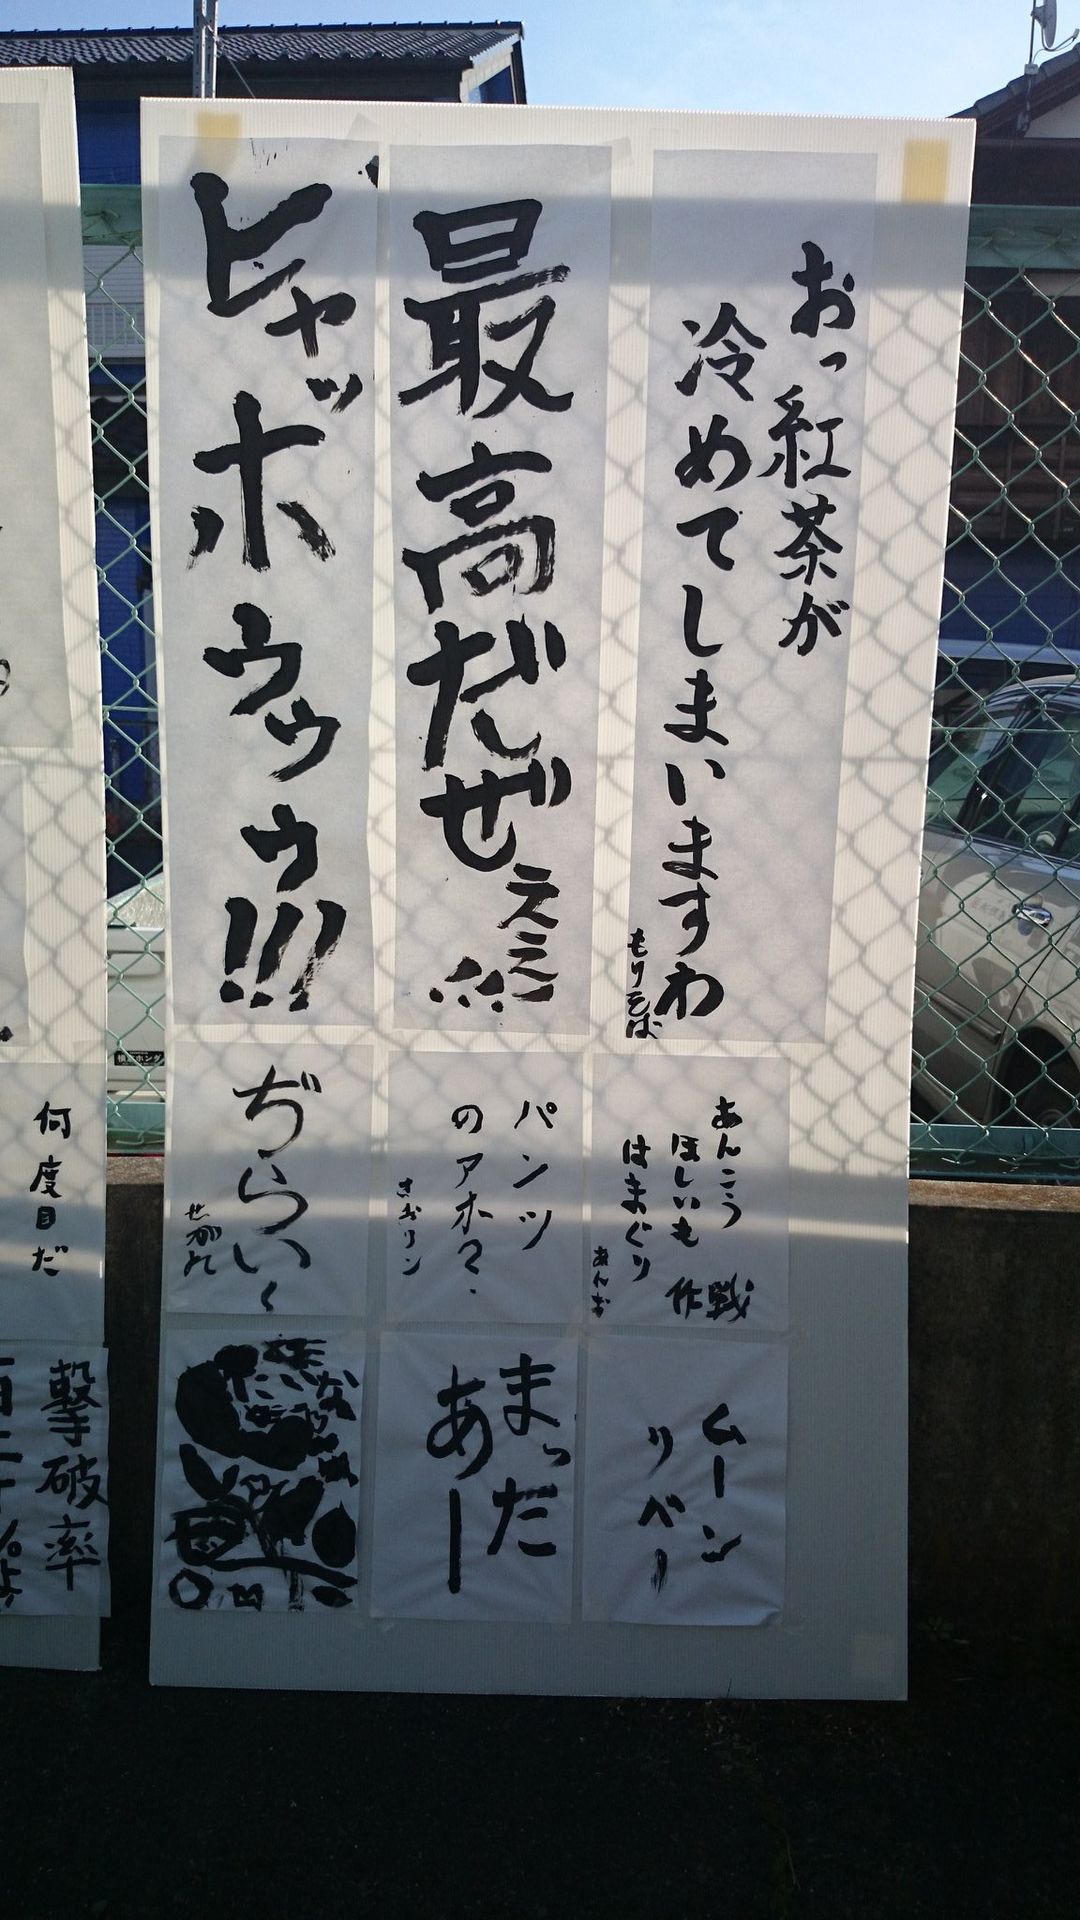 おっ紅茶が
冷めてしまいますわ
もりそば
最高だぜぇええ!!!
ヒャッホウゥゥ!!!
あんこう
ほしいも
はまぐり
作戦
あんお
パンツ
のアホ?
さおリン
ぢらい
せがれ
ムーン
リベー
まった
あー
何度目だ
撃破率